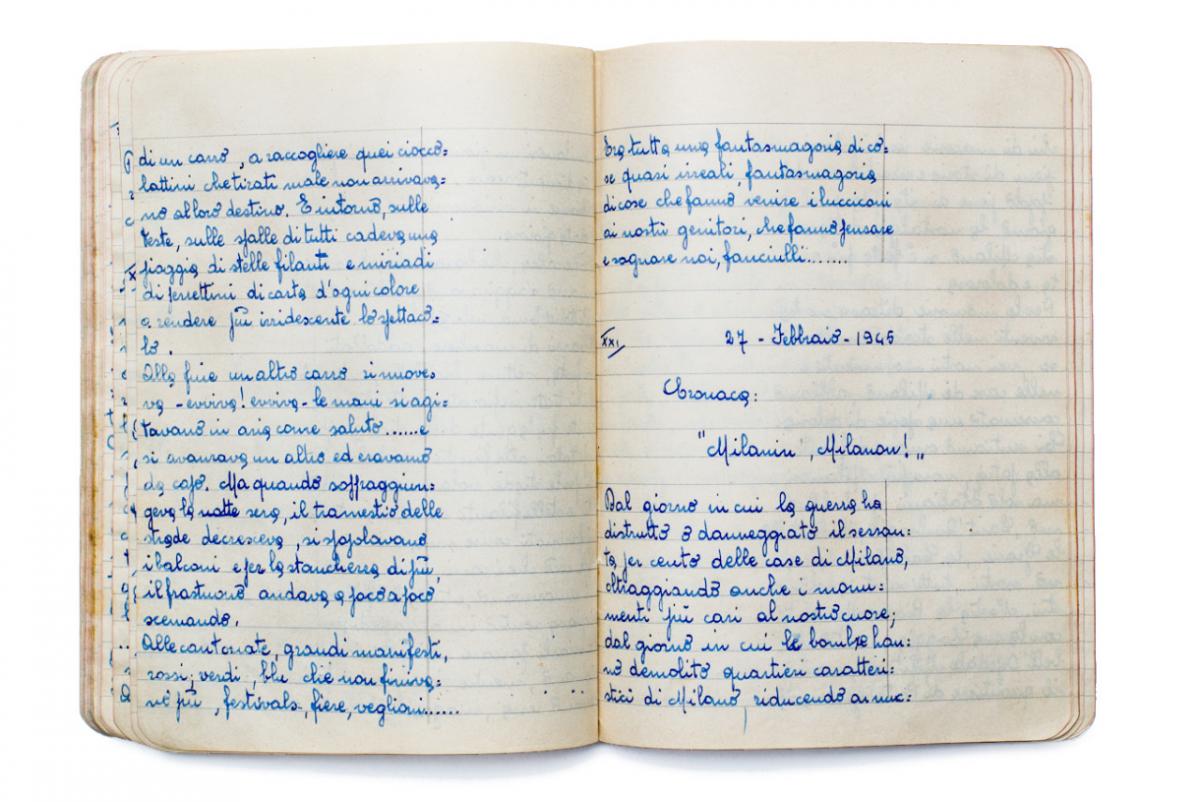 di un carro, a raccogliere quei ciocco=
lattini che tirati male non arrivava=
no al loro destino. E intorno, sulle
teste, sulle spalle di tutti cadeva una
pioggia di stelle filanti e miriadi
di ferrettini di carta d'ogni colore
a rendere più irridescente lo spettaco=
lo.
Alla fine un altro carro si move=
va - evviva! evviva - le mani si agi=
tavano in aria come saluto......e
si avanzava un altro ed eravamo
da capo. Ma quando sopraggiun=
geva la notte sera, il tramestio delle
strade decresceva, si spopolavano
i balconi e per la stanchezza di più,
il frastuono andava a poco a poco
scemando.
Alle cantonate, grandi manifesti,
rossi, verdi, blu che non finiva=
no più, festivals, fiere, veglioni......
Era tutta una fantasmagoria di co=
se quasi irreali, fantasmagoria
di cose che fanno venire i lucciconi
ai nostri genitori, che fanno pensare
e sognare noi, fanciulli.......
XXI
27 - Febbraio - 1945
Cronaca:
"Milanin, Milanon!"
Dal giorno in cui la guerra ha
distrutto o danneggiato il sessan=
ta per cento delle case di Milano,
oltraggiando anche i monu=
menti più cari al nostro cuore;
dal giorno in cui le bombe han=
no demolito quartieri caratteri=
stici di Milano, riducendo a muc=